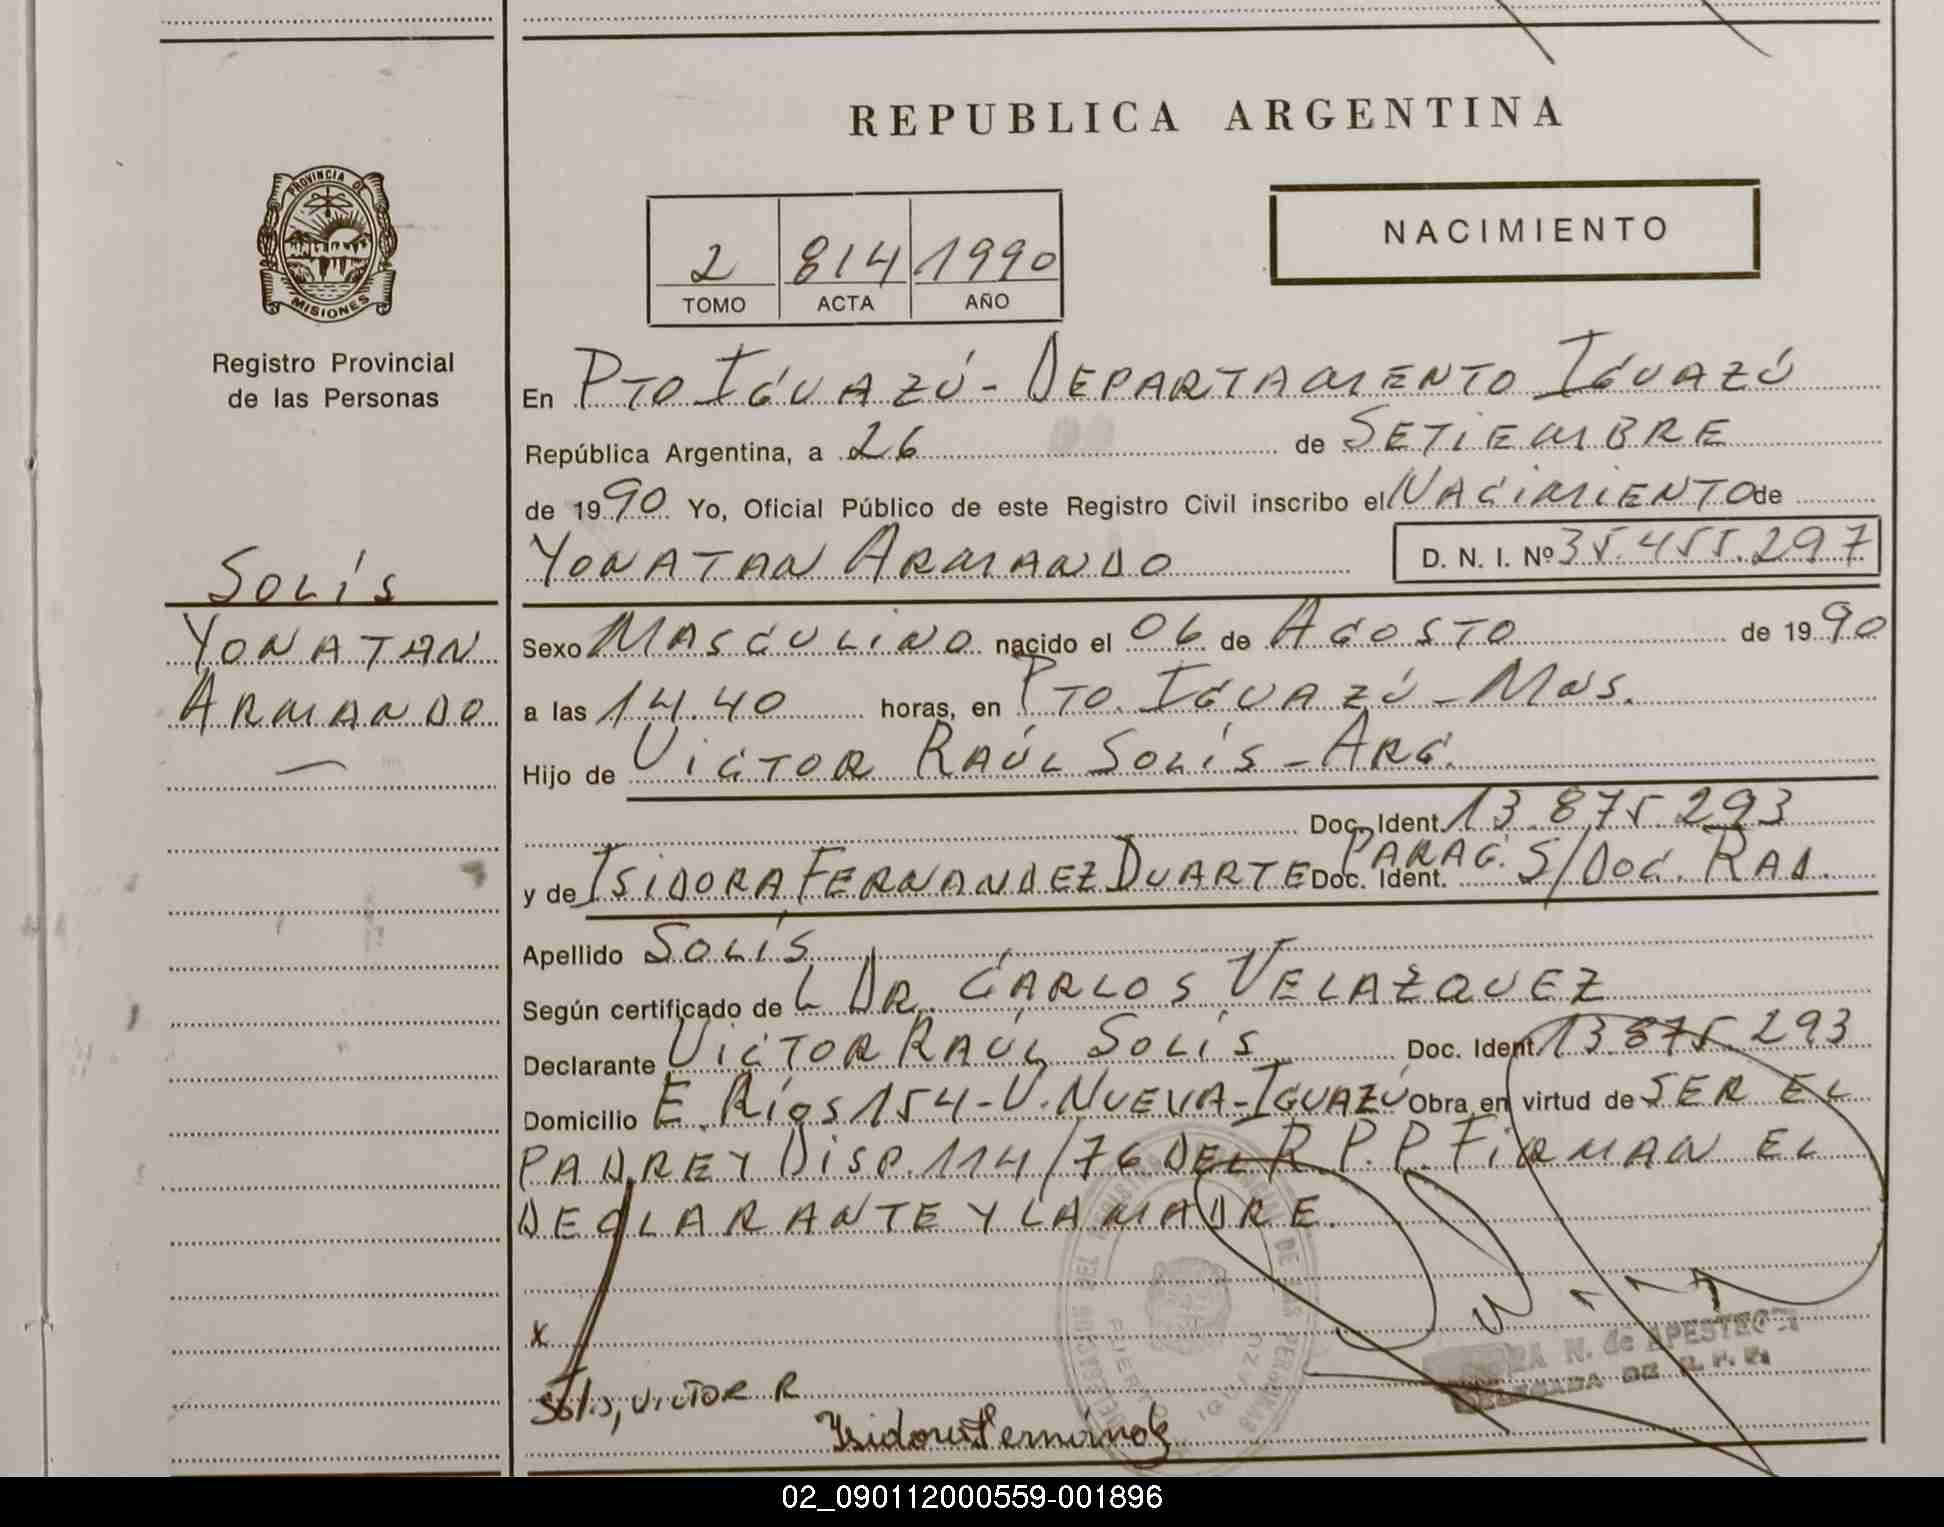 REPUBLICA ARGENTINA
PROVINCIA DE
MISIONES
Registro Provincial
de las Personas
NACIMIENTO
2 814 1990
TOMO ACTA AÑO
En PTO IGUAZÚ - DEPARTAMENTO IGUAZÚ
República Argentina, a 26 de SETIEMBRE
de 1990 Yo, Oficial Público de este Registro Civil inscribo el NACIMIENTO de
YONATAN ARMANDO D. N. I. Nº 35.455.297
SOLÍS
YONATAN
ARMANDO
Sexo MASCULINO nacido el 06 de AGOSTO de 1990
a las 14.40 horas, en PTO. IGUAZÚ - MNS.
Hijo de VICTOR RAÚL SOLÍS - ARG.
Doc. Ident. 13.875.293
y de ISIDORA FERNANDEZ DUARTE PARAG. Doc. Ident. S/DOC. RAD.
Apellido SOLÍS
Según certificado de L DR. CARLOS VELAZQUEZ
Declarante VICTOR RAÚL SOLÍS Doc. Ident. 13.875.293
Domicilio E. RÍOS 154 - V. NUEVA - IGUAZÚ Obra en virtud de SER EL
PADRE Y DISP. 114/76 DEL R.P.P. FIRMAN EL
DECLARANTE Y LA MADRE.
x
Solis, VICTOR R
Isidora Fernández
N. de APESTEG
DELEGADA DE R. P. P.
02_090112000559-001896